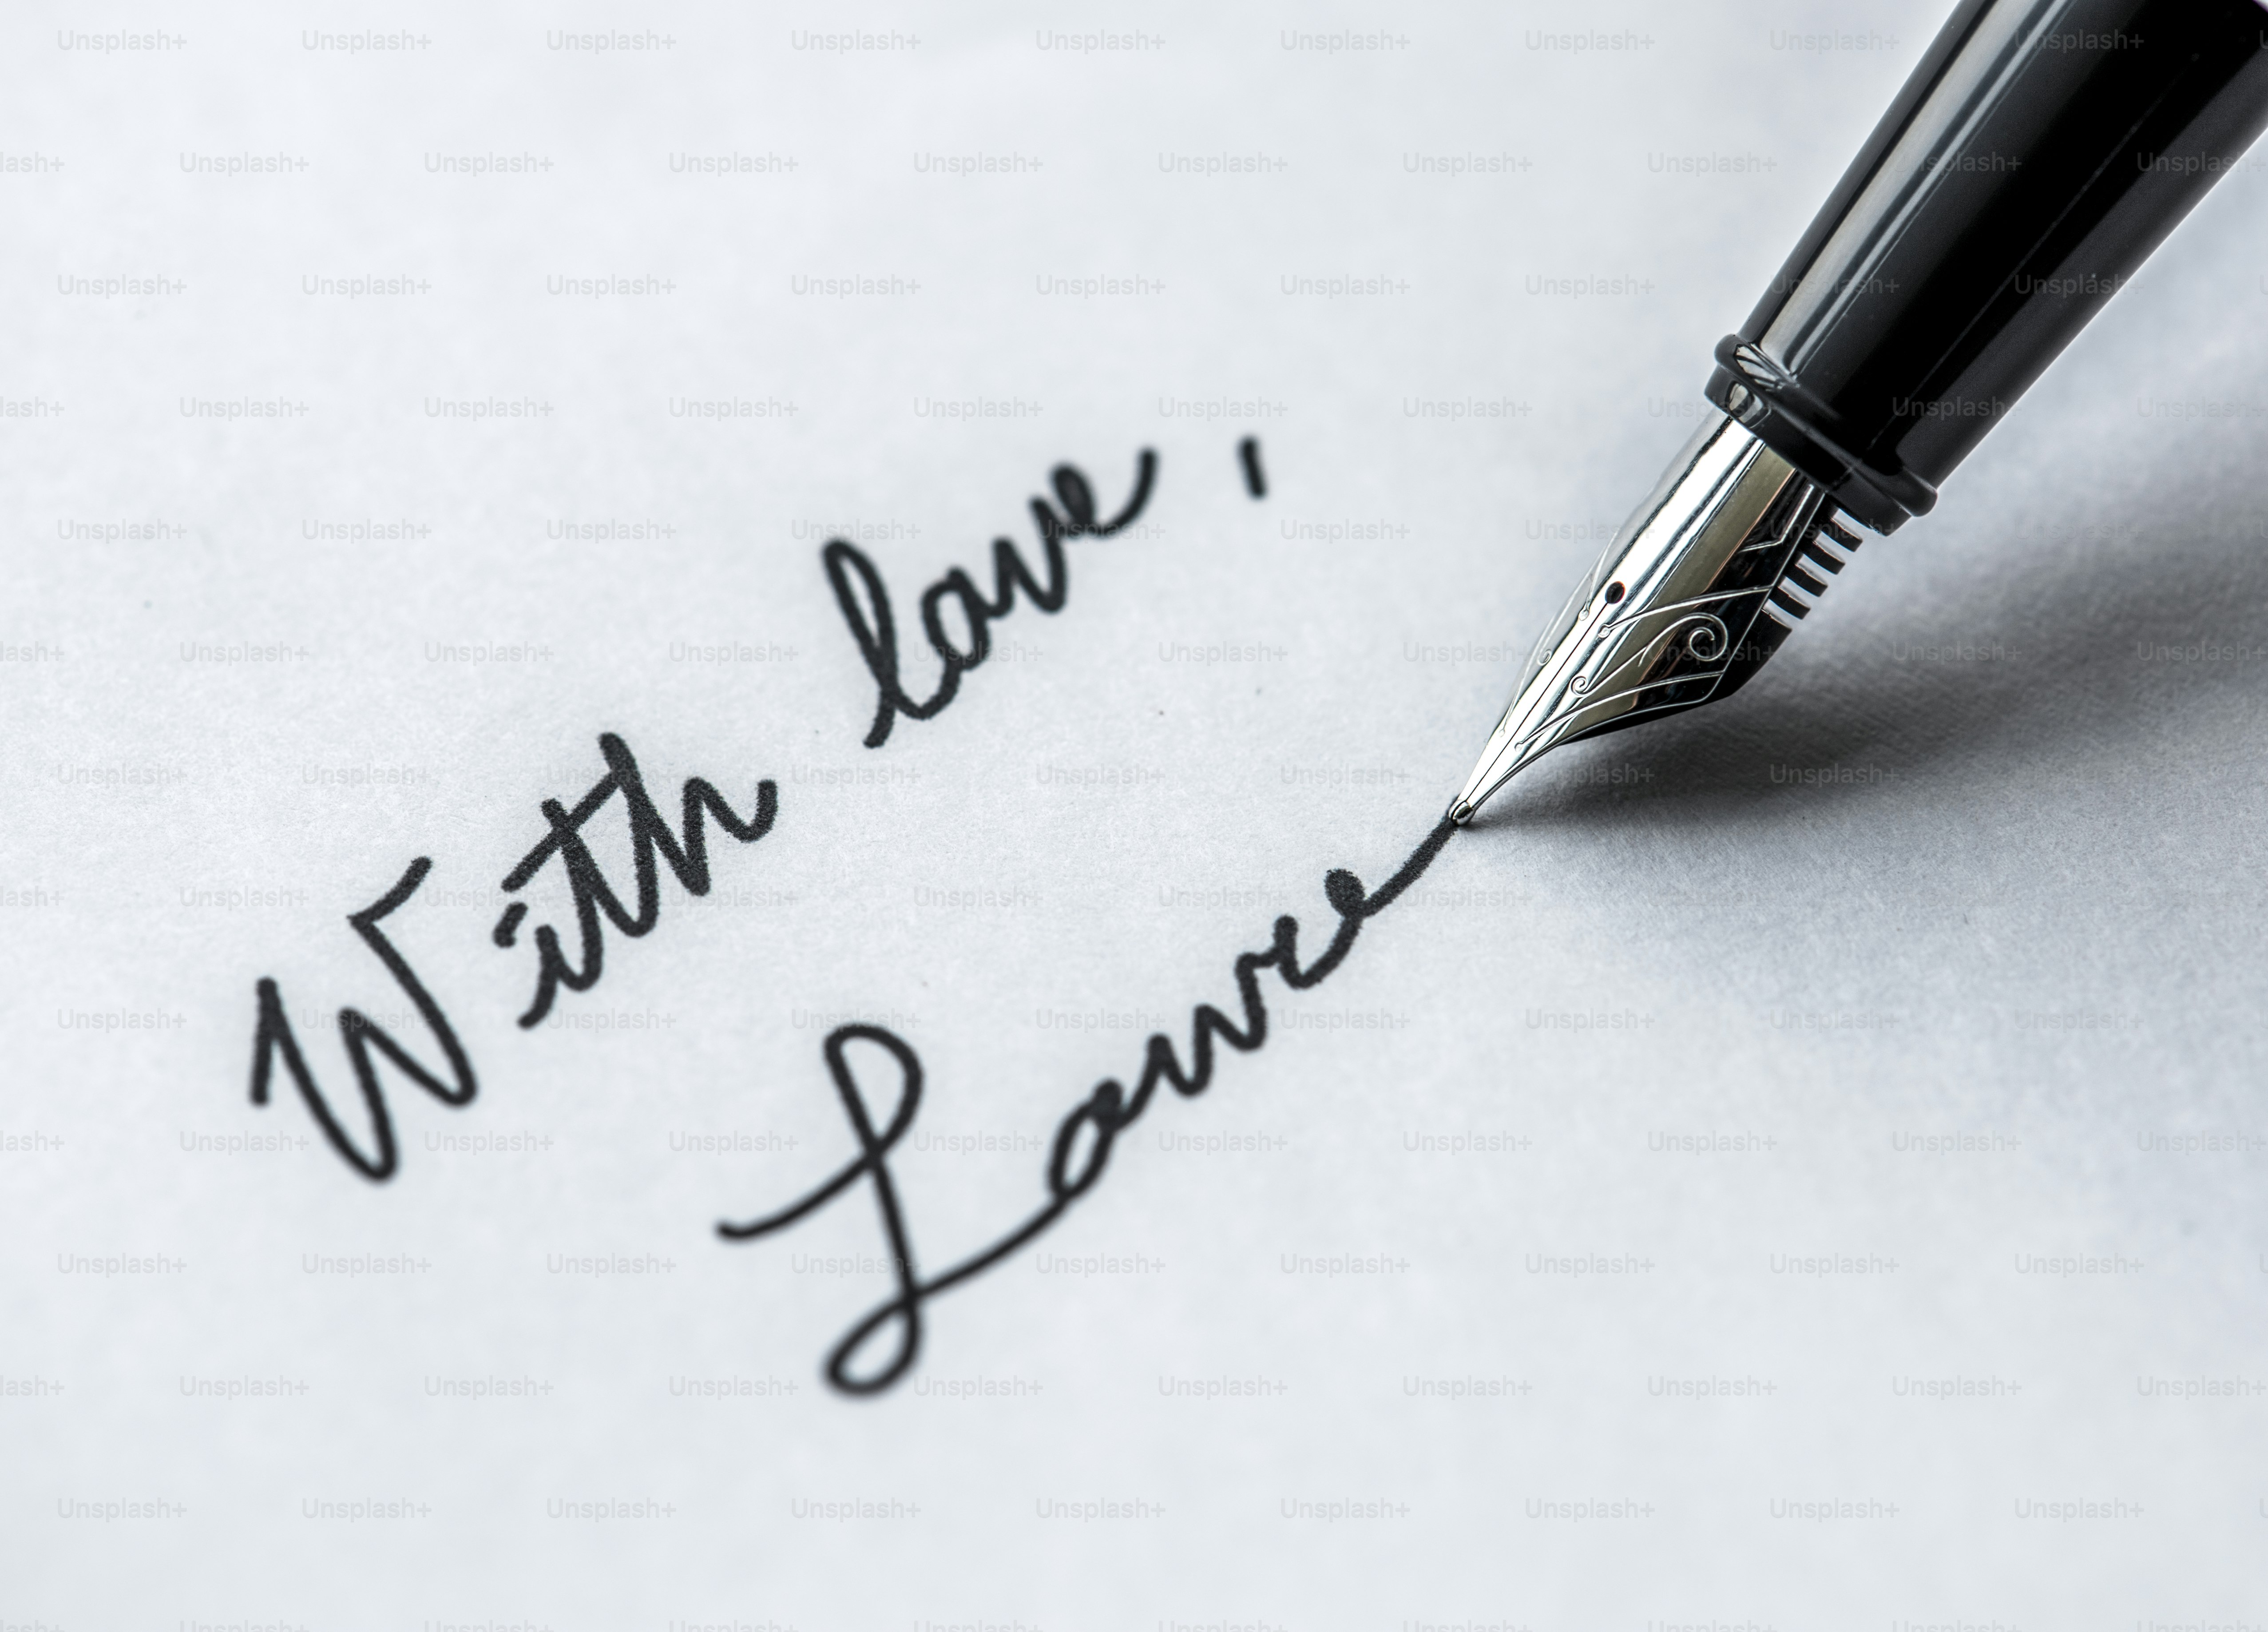 With love,
Laure
Unsplash+